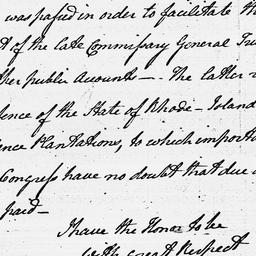 was passed in order to facilitate the
of the late Commissary General Tru
ther public Accounts—. The latter
ence of the State of Rhode-Island
ence Plantations, to which importa
Congress have no doubt that due a
paid—
I have the Honor to be
with great Respect